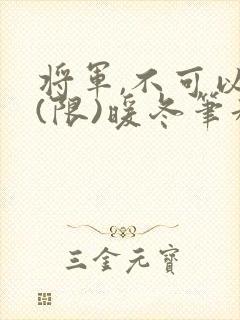 將軍,不可以
(限)暖冬筆
三金元寶